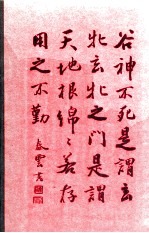 谷神不死是謂玄
牝玄牝之門是謂
天地根綿〻若存
用之不勤
雲